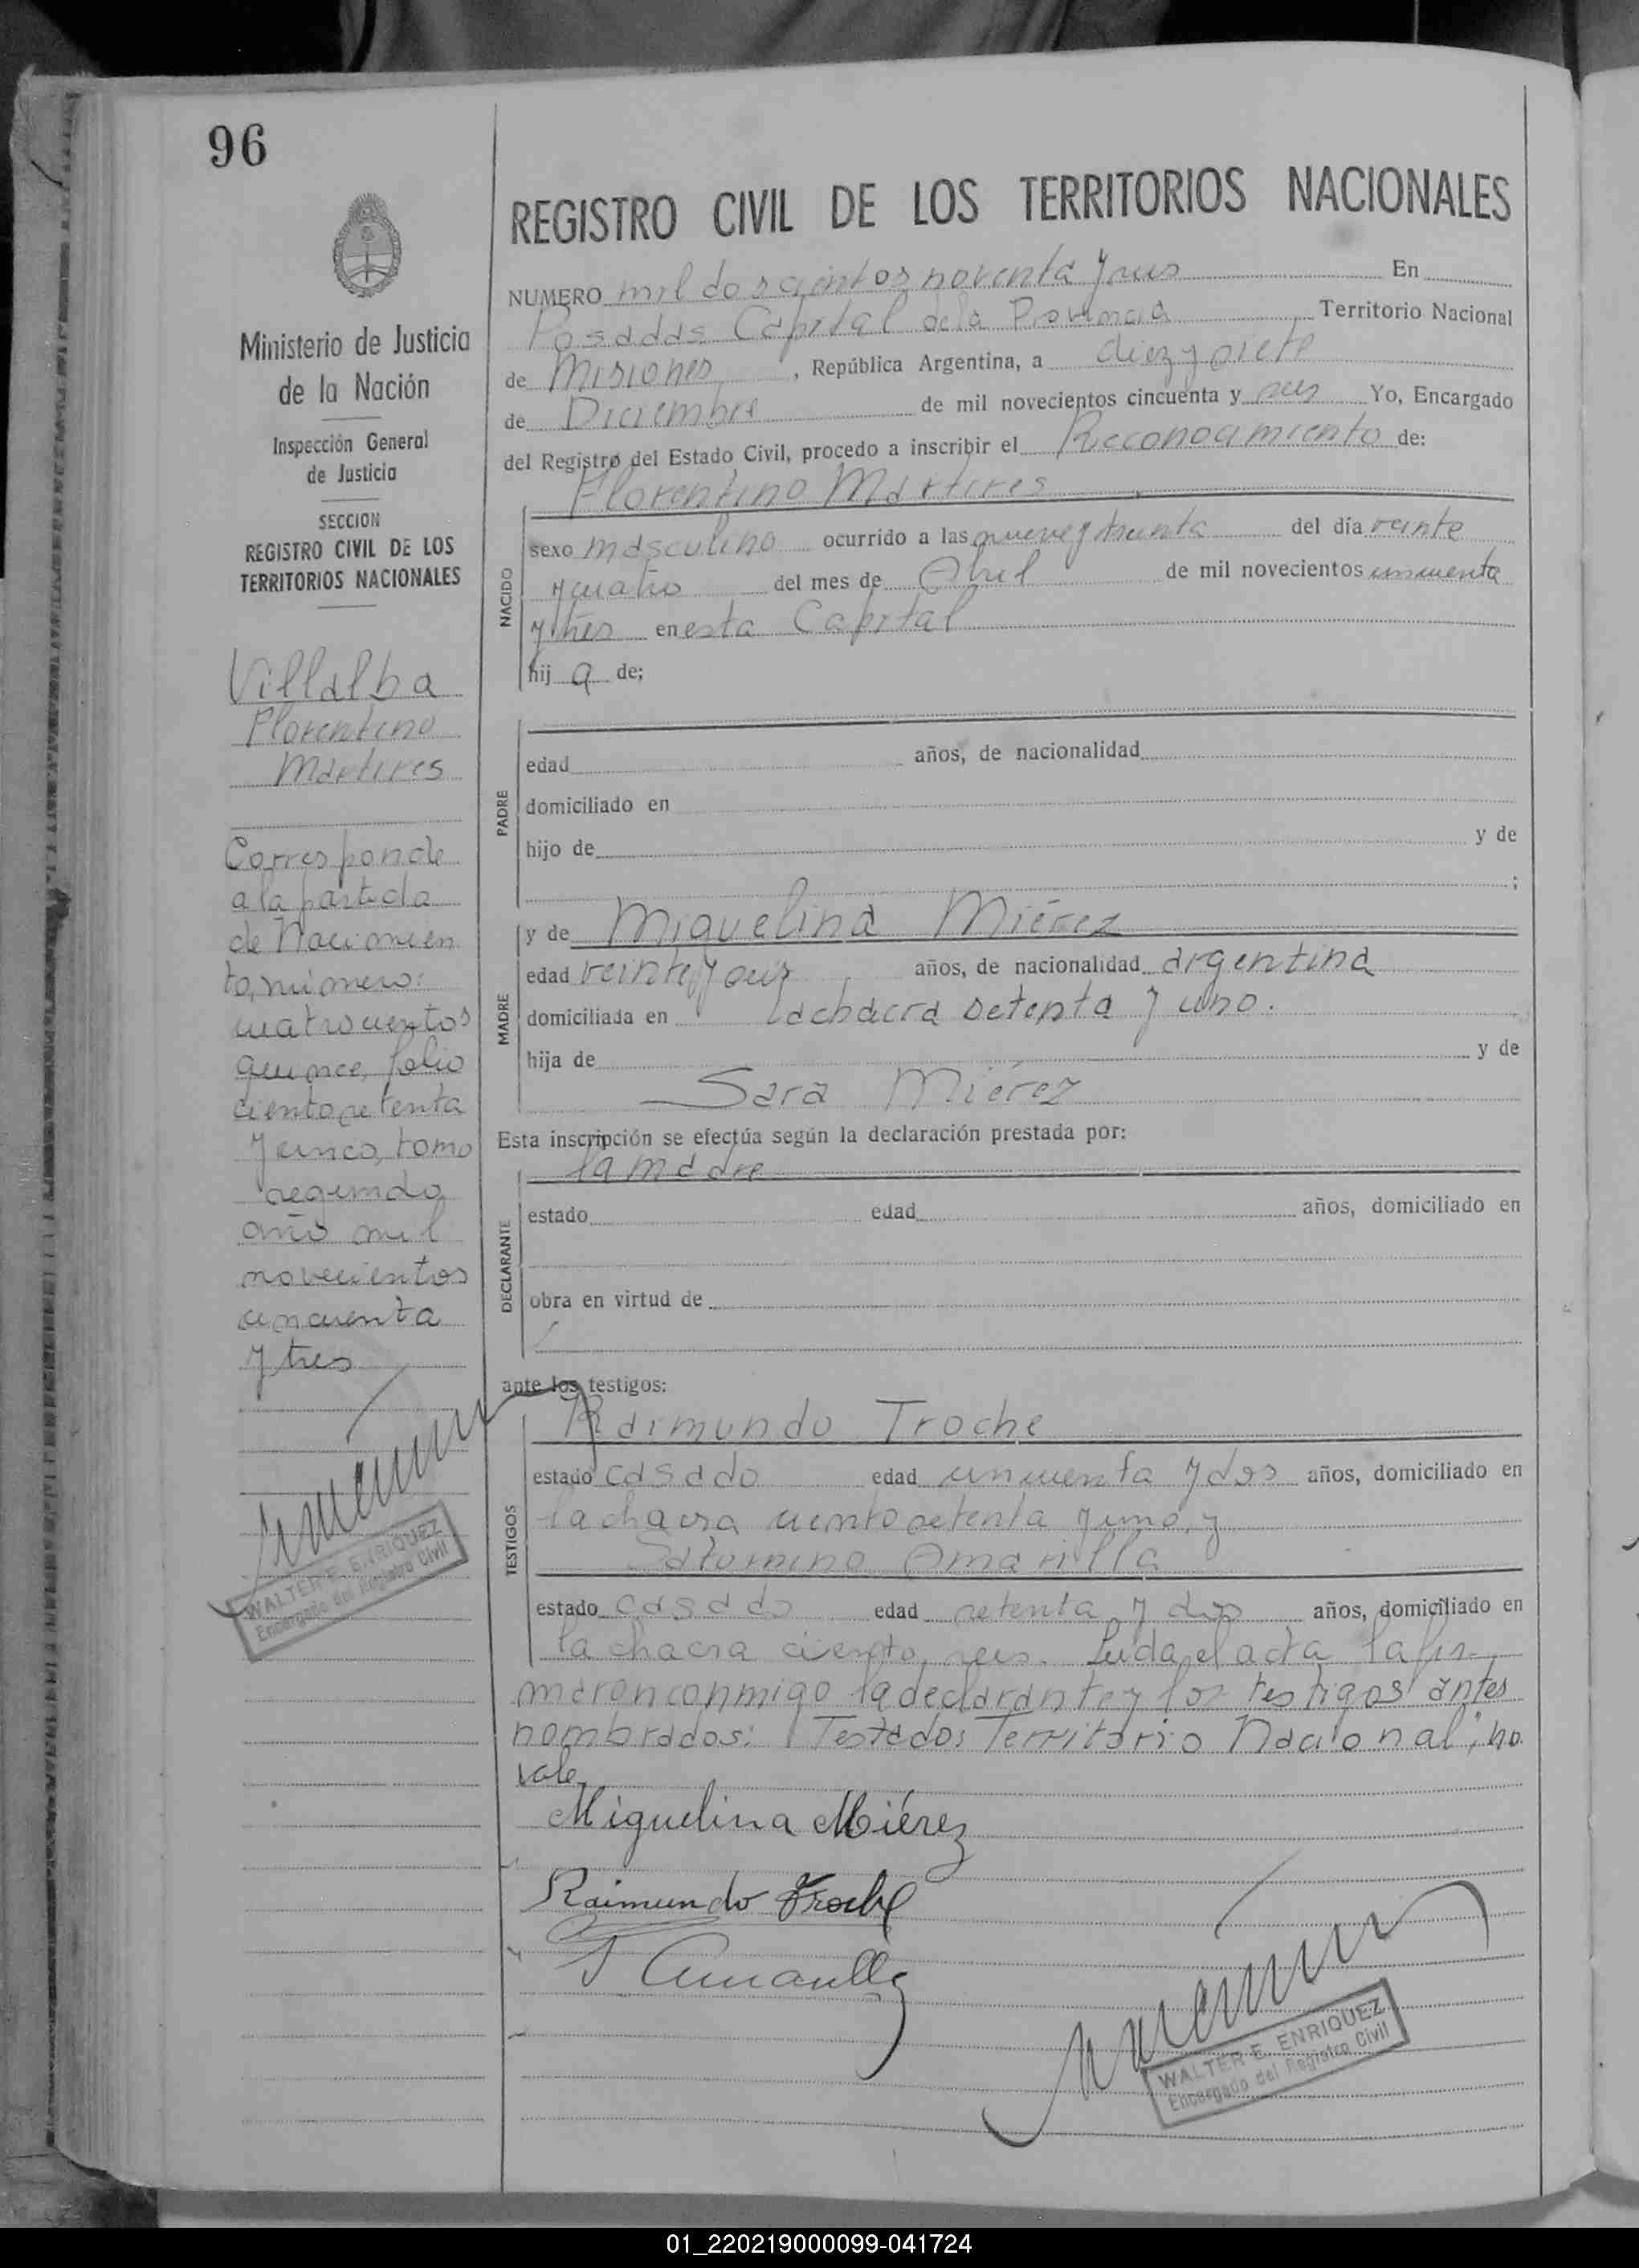 96
REGISTRO CIVIL DE LOS TERRITORIOS NACIONALES
Ministerio de Justicia
de la Nación
Inspección General
de Justicia
SECCION
REGISTRO CIVIL DE LOS
TERRITORIOS NACIONALES
Villalba
Florentino
Martires
Corresponde
a la partida
de Nacimien
to, número:
cuatrocientos
quince, folio
ciento setenta
y cinco, tomo
segundo
año mil
novecientos
cincuenta
y tres
WALTER E. ENRIQUEZ
Encargado del Registro Civil
NUMERO mil doscientos noventa y seis En
Posadas Capital de la Provincia Territorio Nacional
de Misiones, República Argentina, a diez y siete
de Diciembre de mil novecientos cincuenta y seis Yo, Encargado
del Registro del Estado Civil, procedo a inscribir el Reconocimiento de:
Florentino Martires
NACIDO
sexo masculino ocurrido a las nueve y treinta del día veinte
y cuatro del mes de Abril de mil novecientos cincuenta
y tres en esta Capital
hij a de;
PADRE
edad años, de nacionalidad
domiciliado en
hijo de y de
;
MADRE
y de Miguelina Miérez
edad veinte y seis años, de nacionalidad argentina
domiciliada en la chacra setenta y uno.
hija de y de
Sara Miérez
Esta inscripción se efectúa según la declaración prestada por:
la madre
DECLARANTE
estado edad años, domiciliado en
obra en virtud de
ante los testigos:
TESTIGOS
Raimundo Troche
estado casado edad cincuenta y dos años, domiciliado en
la chacra ciento setenta y uno, y
Saturnino Amarilla
estado casado edad setenta y dos años, domiciliado en
la chacra ciento seis. Leida el acta la fir-
maron conmigo la declarante y los testigos antes
nombrados: Testado: Territorio Nacional"; no
vale
Miguelina Miérez
Raimundo Troche
S Amarilla
WALTER E. ENRIQUEZ
Encargado del Registro Civil
01_220219000099-041724